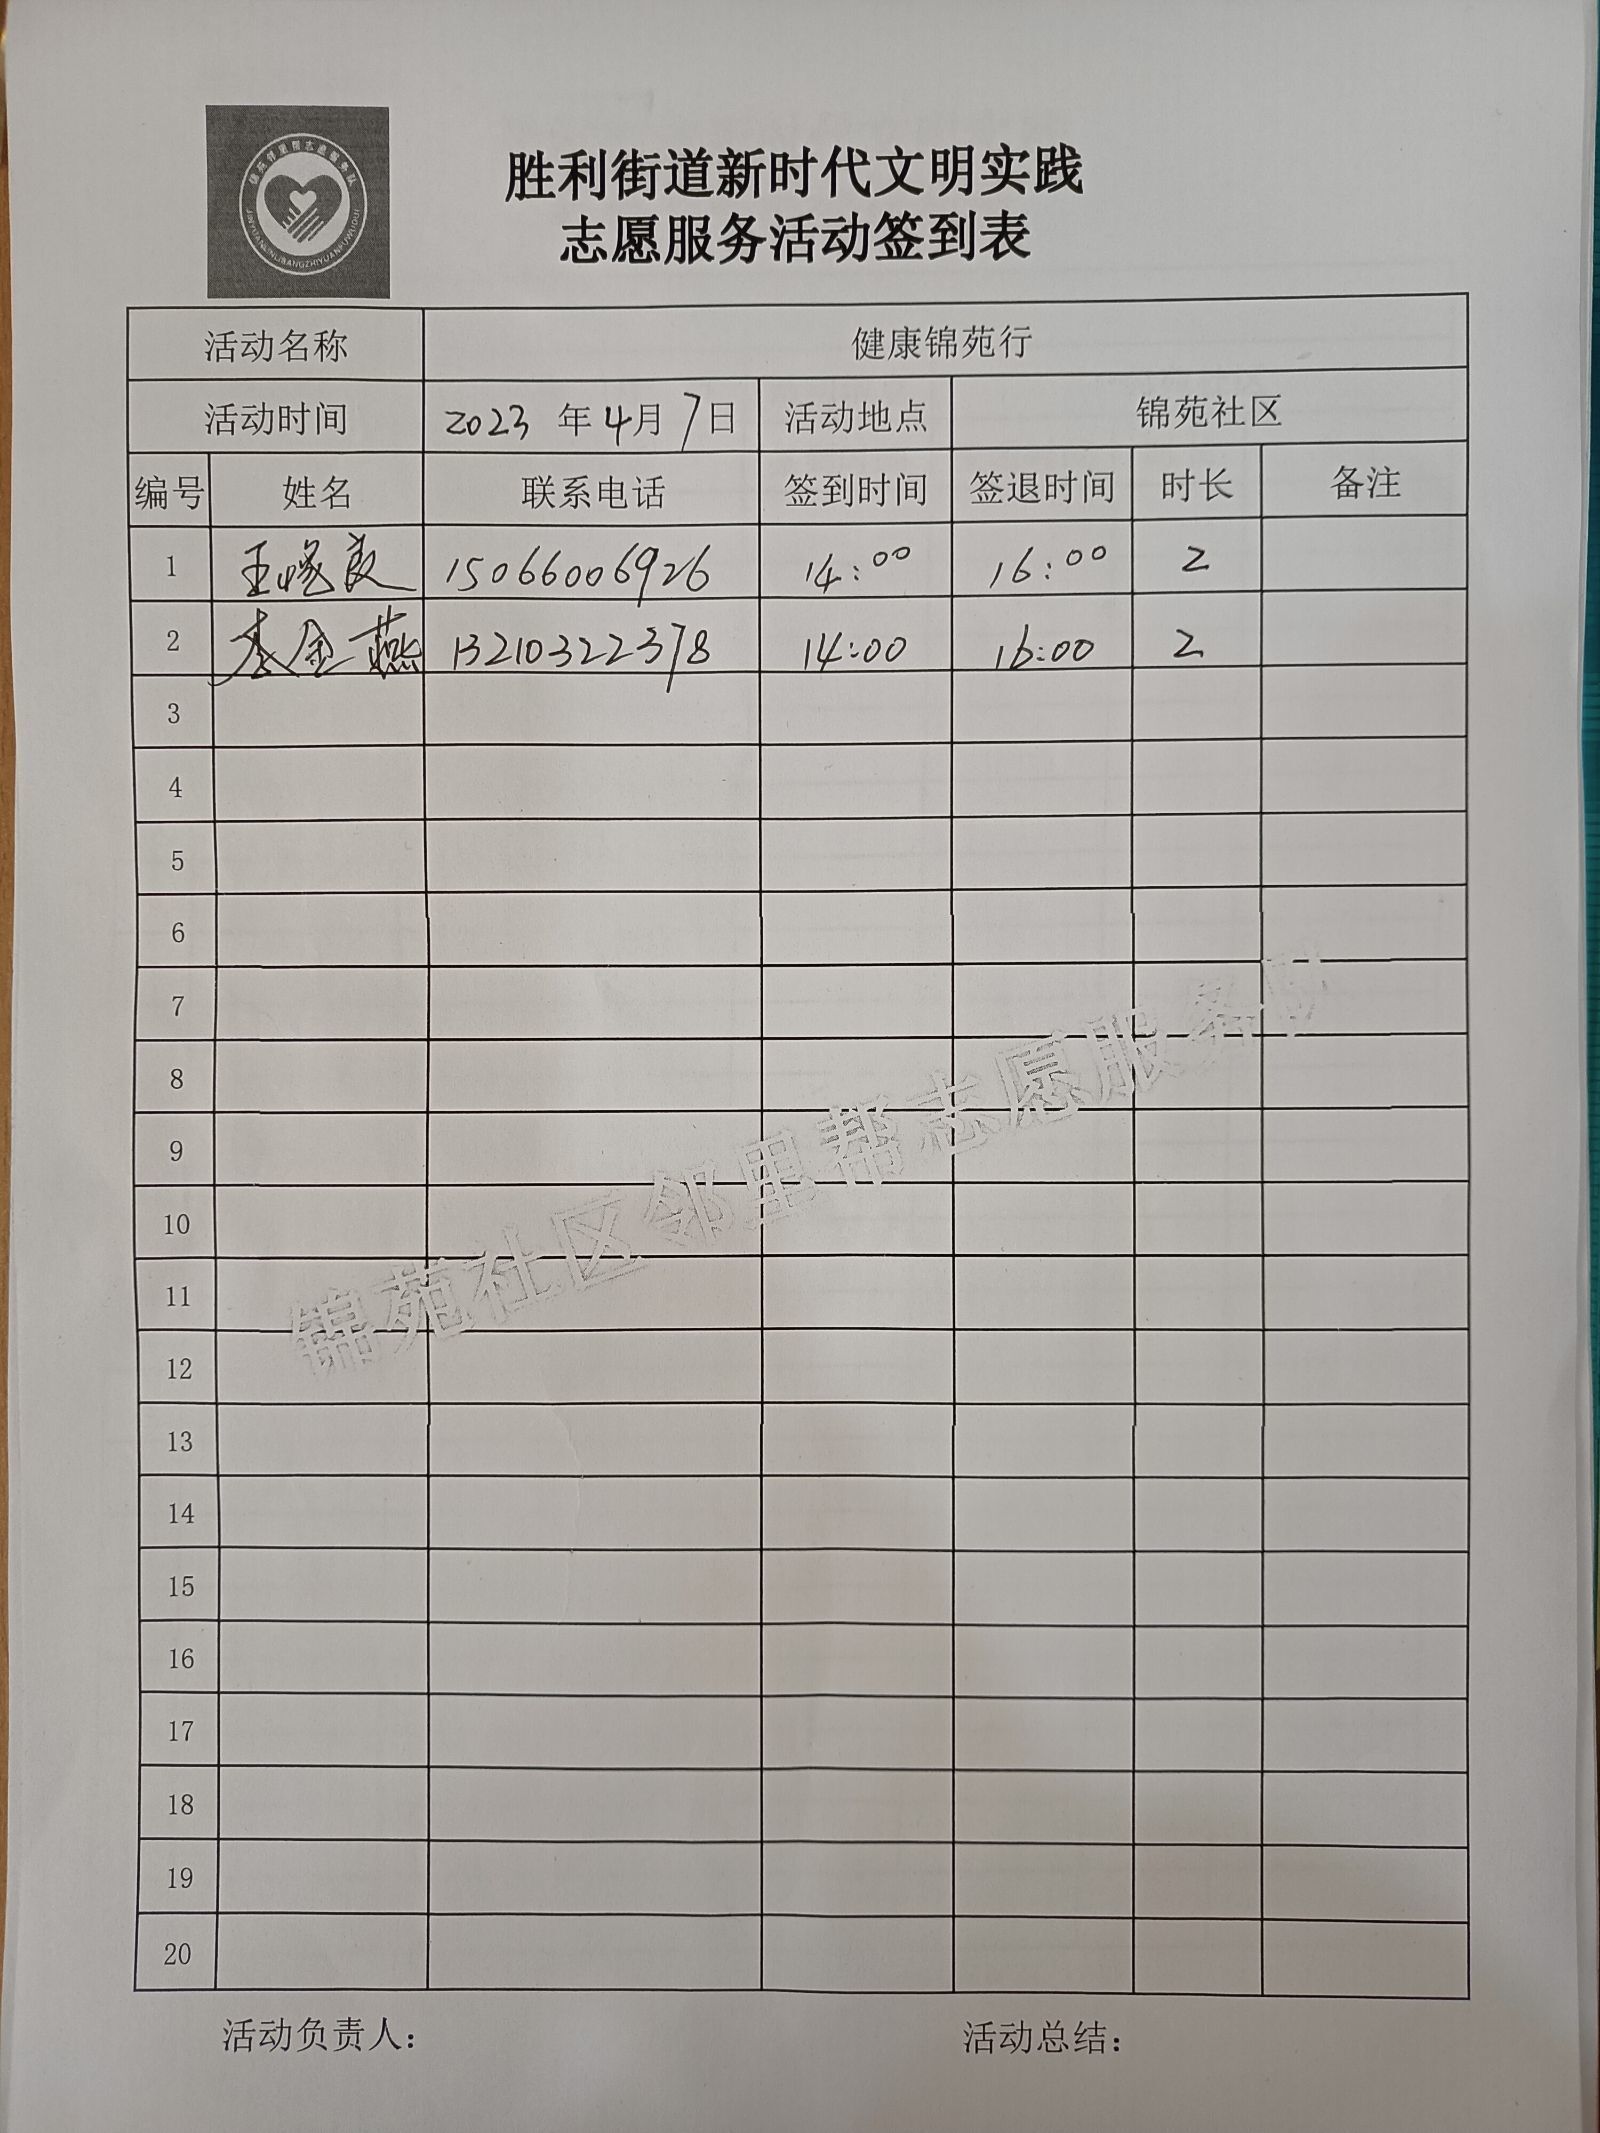 锦苑邻里帮志愿服务队
JINYUANLINLIBANGZHIYUANFUWUDUI
胜利街道新时代文明实践
志愿服务活动签到表
活动名称 健康锦苑行
活动时间 2023 年 4月 7日 活动地点 锦苑社区
编号 姓名 联系电话 签到时间 签退时间 时长 备注
1 王 良 15066006926 14:00 16:00 2
2 李金燕 13210322378 14:00 16:00 2
3
4
5
6
7
8
9
10
11
12
13
14
15
16
17
18
19
20
锦苑社区邻里帮志愿服务队
活动负责人： 活动总结：